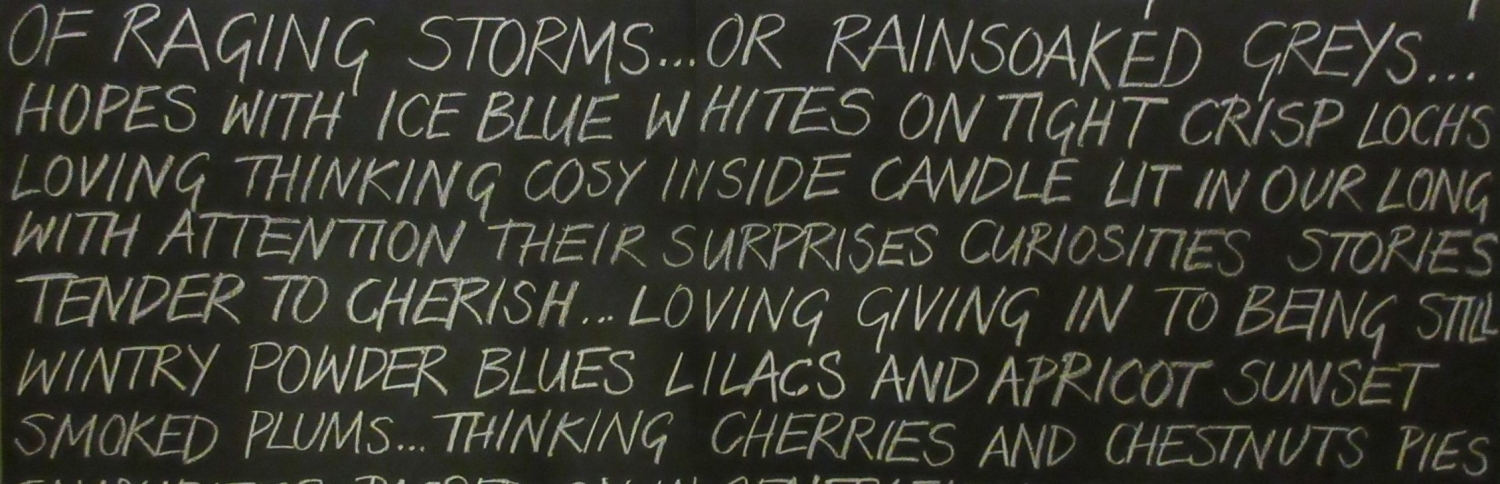 OF RAGING STORMS...OR RAINSOAKED GREYS...
HOPES WITH ICE BLUE WHITES ON TIGHT CRISP LOCHS
LOVING THINKING COSY INSIDE CANDLE LIT IN OUR LONG
WITH ATTENTION THEIR SURPRISES CURIOSITIES STORIES
TENDER TO CHERISH... LOVING GIVING IN TO BEING STILL
WINTRY POWDER BLUES LILACS AND APRICOT SUNSET
SMOKED PLUMS...THINKING CHERRIES AND CHESTNUTS PIES